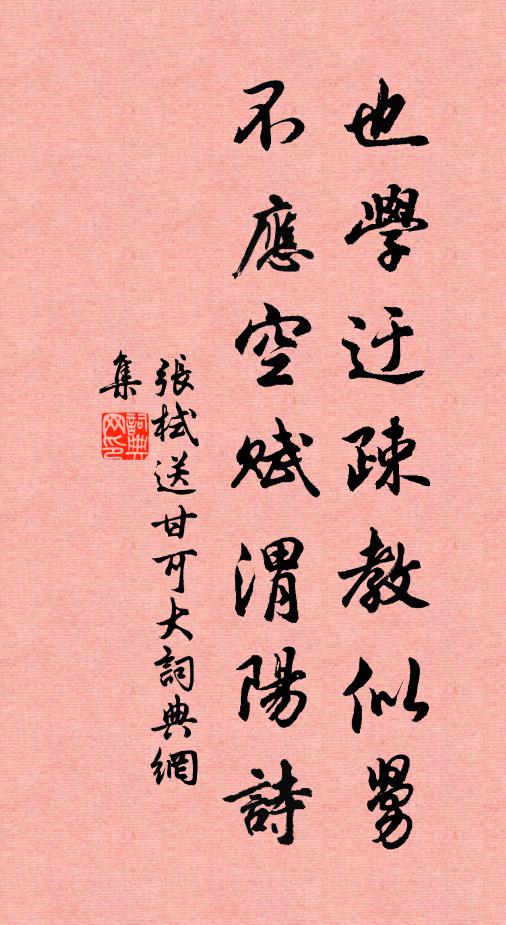 也學迂疎教似舅
不應空賦渭陽詩
張栻送甘可大詞典網
集
詞典網印